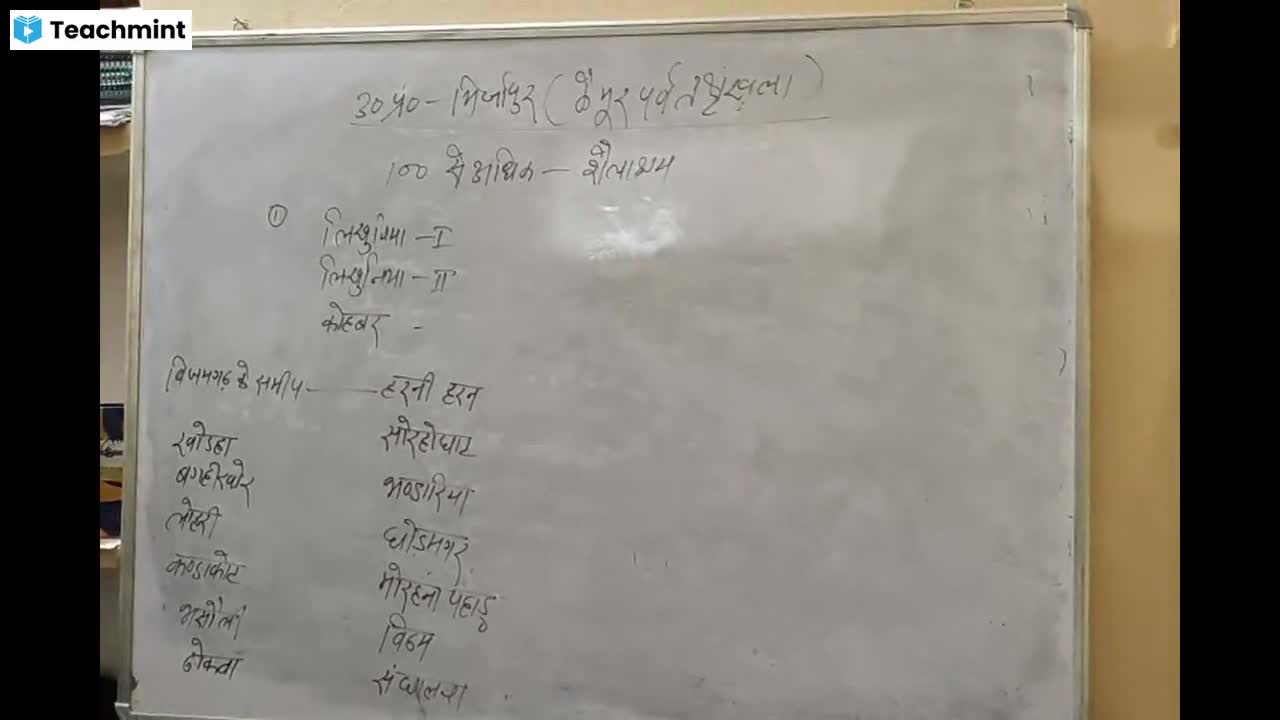 Teachmint
उ०प्र० - मिर्जापुर ( कैमूर पर्वत श्रृंखला )
100 से अधिक — शैलाश्रय
① लिखुनिया - I
लिखुनिया - II
कोहबर -
विजयगढ़ के समीप —— हरनी हरन
खोडहा सोरहोघाट
बगहीखोर भण्डारिया
लोहरी घोड़मंगर
कण्डाकोट मोरहना पहाड़
भसौली विढम
ढोकवा